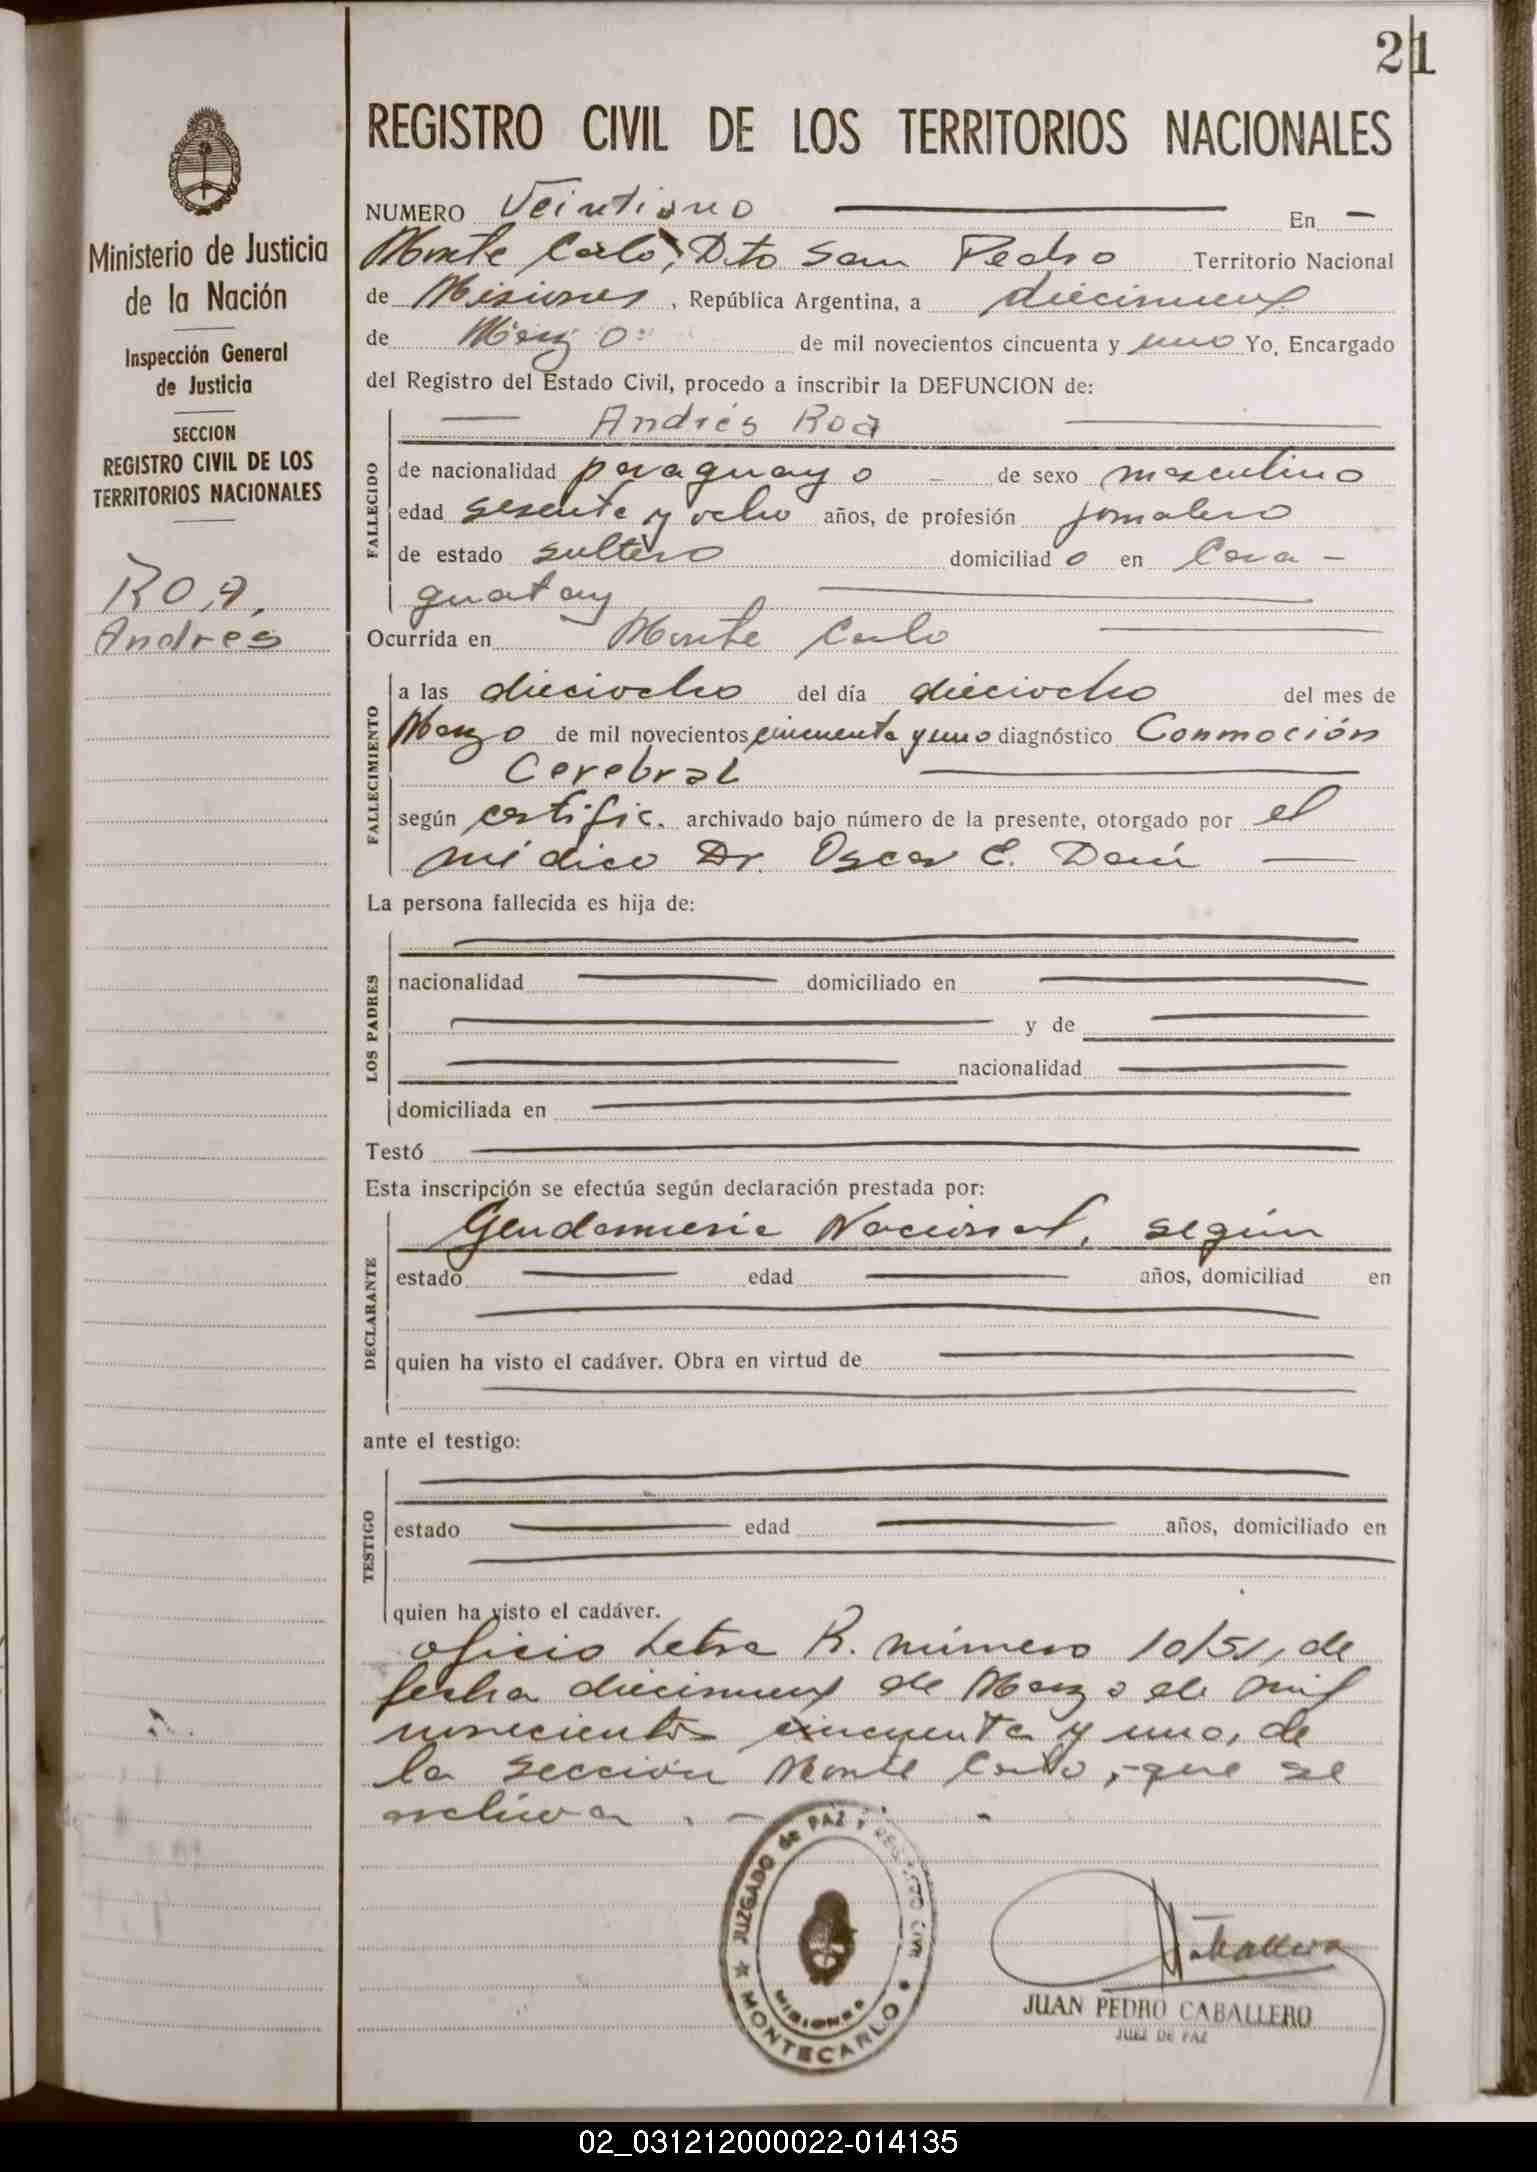 21
REGISTRO CIVIL DE LOS TERRITORIOS NACIONALES
Ministerio de Justicia
de la Nación
Inspección General
de Justicia
SECCION
REGISTRO CIVIL DE LOS
TERRITORIOS NACIONALES
Roa,
Andrés
NUMERO Veintiuno En
Monte Carlo, Dto San Pedro Territorio Nacional
de Misiones, República Argentina, a diecinueve
de Marzo de mil novecientos cincuenta y uno Yo, Encargado
del Registro del Estado Civil, procedo a inscribir la DEFUNCION de:
Andrés Roa
FALLECIDO
de nacionalidad paraguayo de sexo masculino
edad sesenta y ocho años, de profesión jornalero
de estado soltero domiciliado en Cara-
guatay
Ocurrida en Monte Carlo
FALLECIMIENTO
a las dieciocho del día dieciocho del mes de
Marzo de mil novecientos cincuenta y uno diagnóstico Conmoción
Cerebral
según certific. archivado bajo número de la presente, otorgado por el
médico Dr. Oscar E.
La persona fallecida es hija de:
LOS PADRES
nacionalidad domiciliado en
y de
nacionalidad
domiciliada en
Testó
Esta inscripción se efectúa según declaración prestada por:
DECLARANTE
Gendarmeria Nacional, según
estado edad años, domiciliad en
quien ha visto el cadáver. Obra en virtud de
ante el testigo:
TESTIGO
estado edad años, domiciliado en
quien ha visto el cadáver.
oficio Letra R. número 10/51, de
fecha diecinueve de Marzo de mil
novecientos cincuenta y uno, de
la sección Monte Carlo, que se
archiva.-
JUZGADO de PAZ Y REGISTRO CIVIL
MISIONES
MONTECARLO
Caballero
JUAN PEDRO CABALLERO
JUEZ DE PAZ
02_031212000022-014135